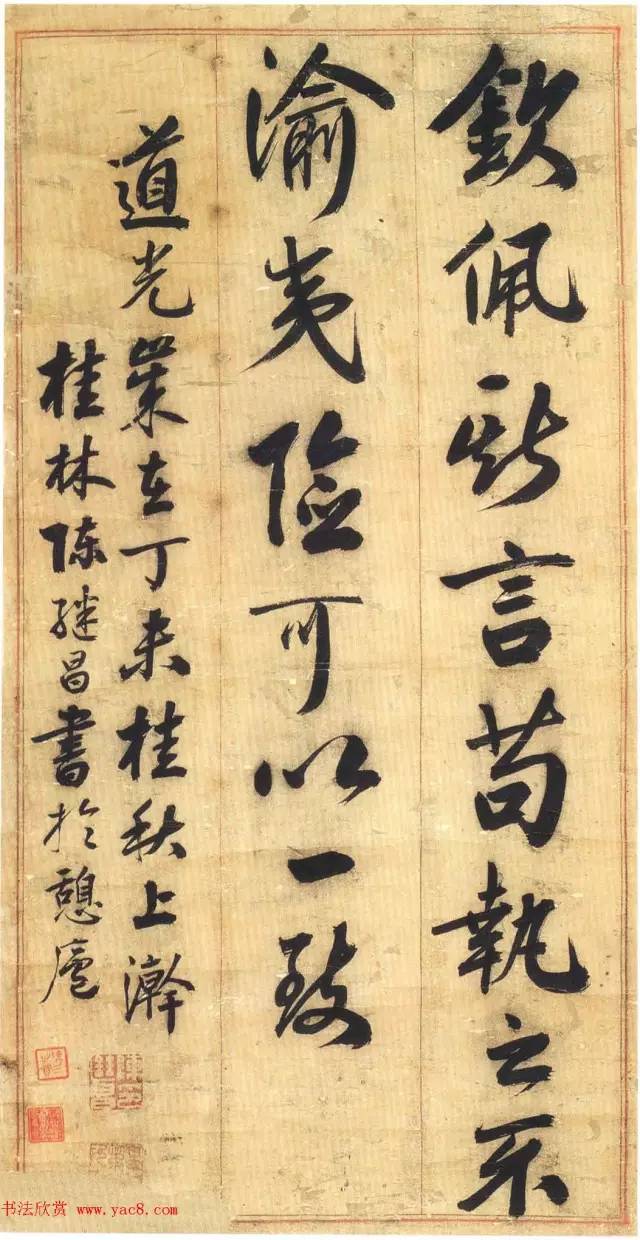 欽佩斯言苟執之不
渝夷險可以一致
道光歲在丁未桂秋上澣
桂林陈继昌書於憩廬
书法欣赏 www.yac8.com